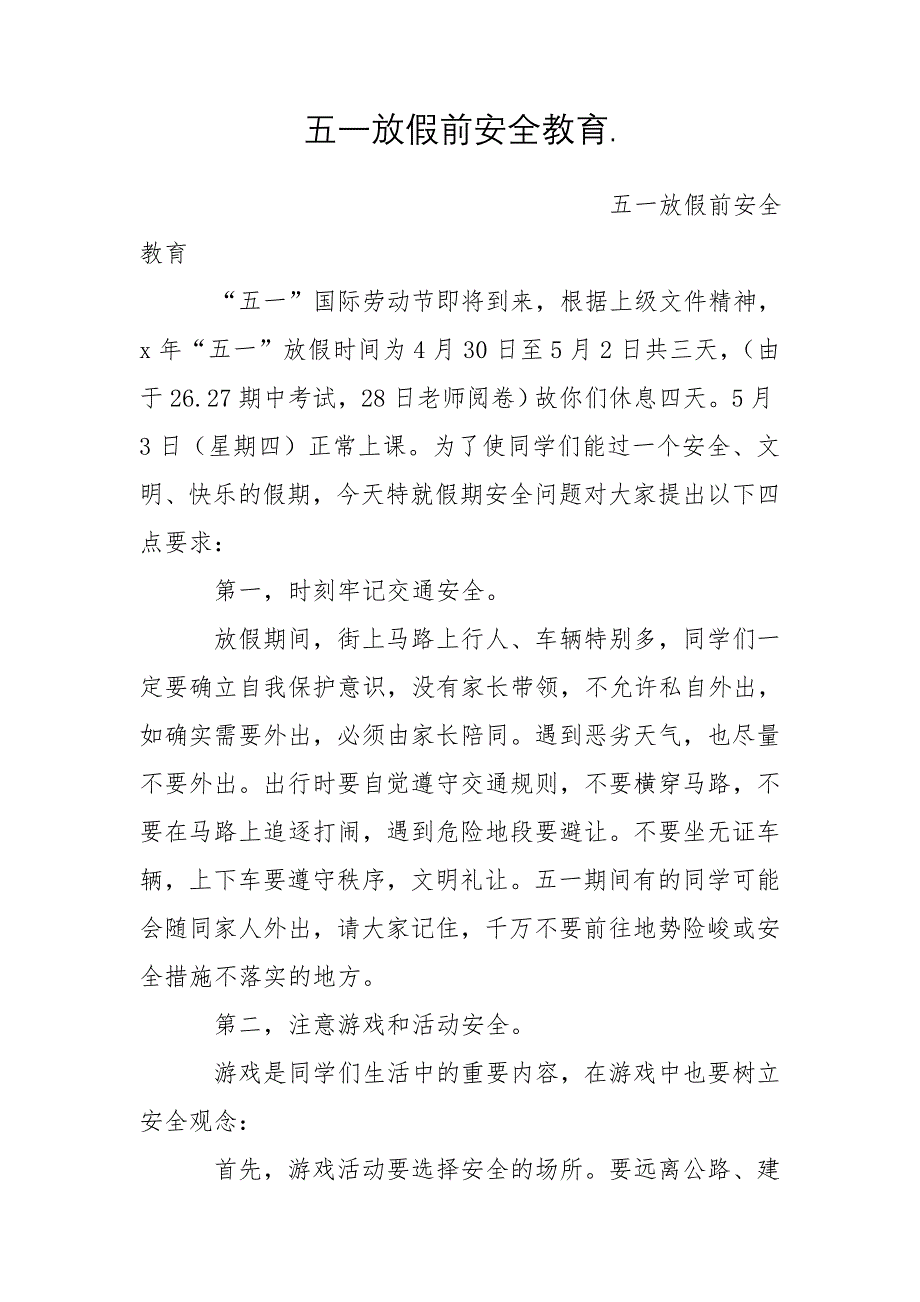 五一放假前安全教育.
五一放假前安全
教育
“五一”国际劳动节即将到来，根据上级文件精神，
x 年“五一”放假时间为 4 月 30 日至 5 月 2 日共三天，（由
于 26.27 期中考试，28 日老师阅卷）故你们休息四天。5 月
3 日（星期四）正常上课。为了使同学们能过一个安全、文
明、快乐的假期，今天特就假期安全问题对大家提出以下四
点要求：
第一，时刻牢记交通安全。
放假期间，街上马路上行人、车辆特别多，同学们一
定要确立自我保护意识，没有家长带领，不允许私自外出，
如确实需要外出，必须由家长陪同。遇到恶劣天气，也尽量
不要外出。出行时要自觉遵守交通规则，不要横穿马路，不
要在马路上追逐打闹，遇到危险地段要避让。不要坐无证车
辆，上下车要遵守秩序，文明礼让。五一期间有的同学可能
会随同家人外出，请大家记住，千万不要前往地势险峻或安
全措施不落实的地方。
第二，注意游戏和活动安全。
游戏是同学们生活中的重要内容，在游戏中也要树立
安全观念：
首先，游戏活动要选择安全的场所。要远离公路、建